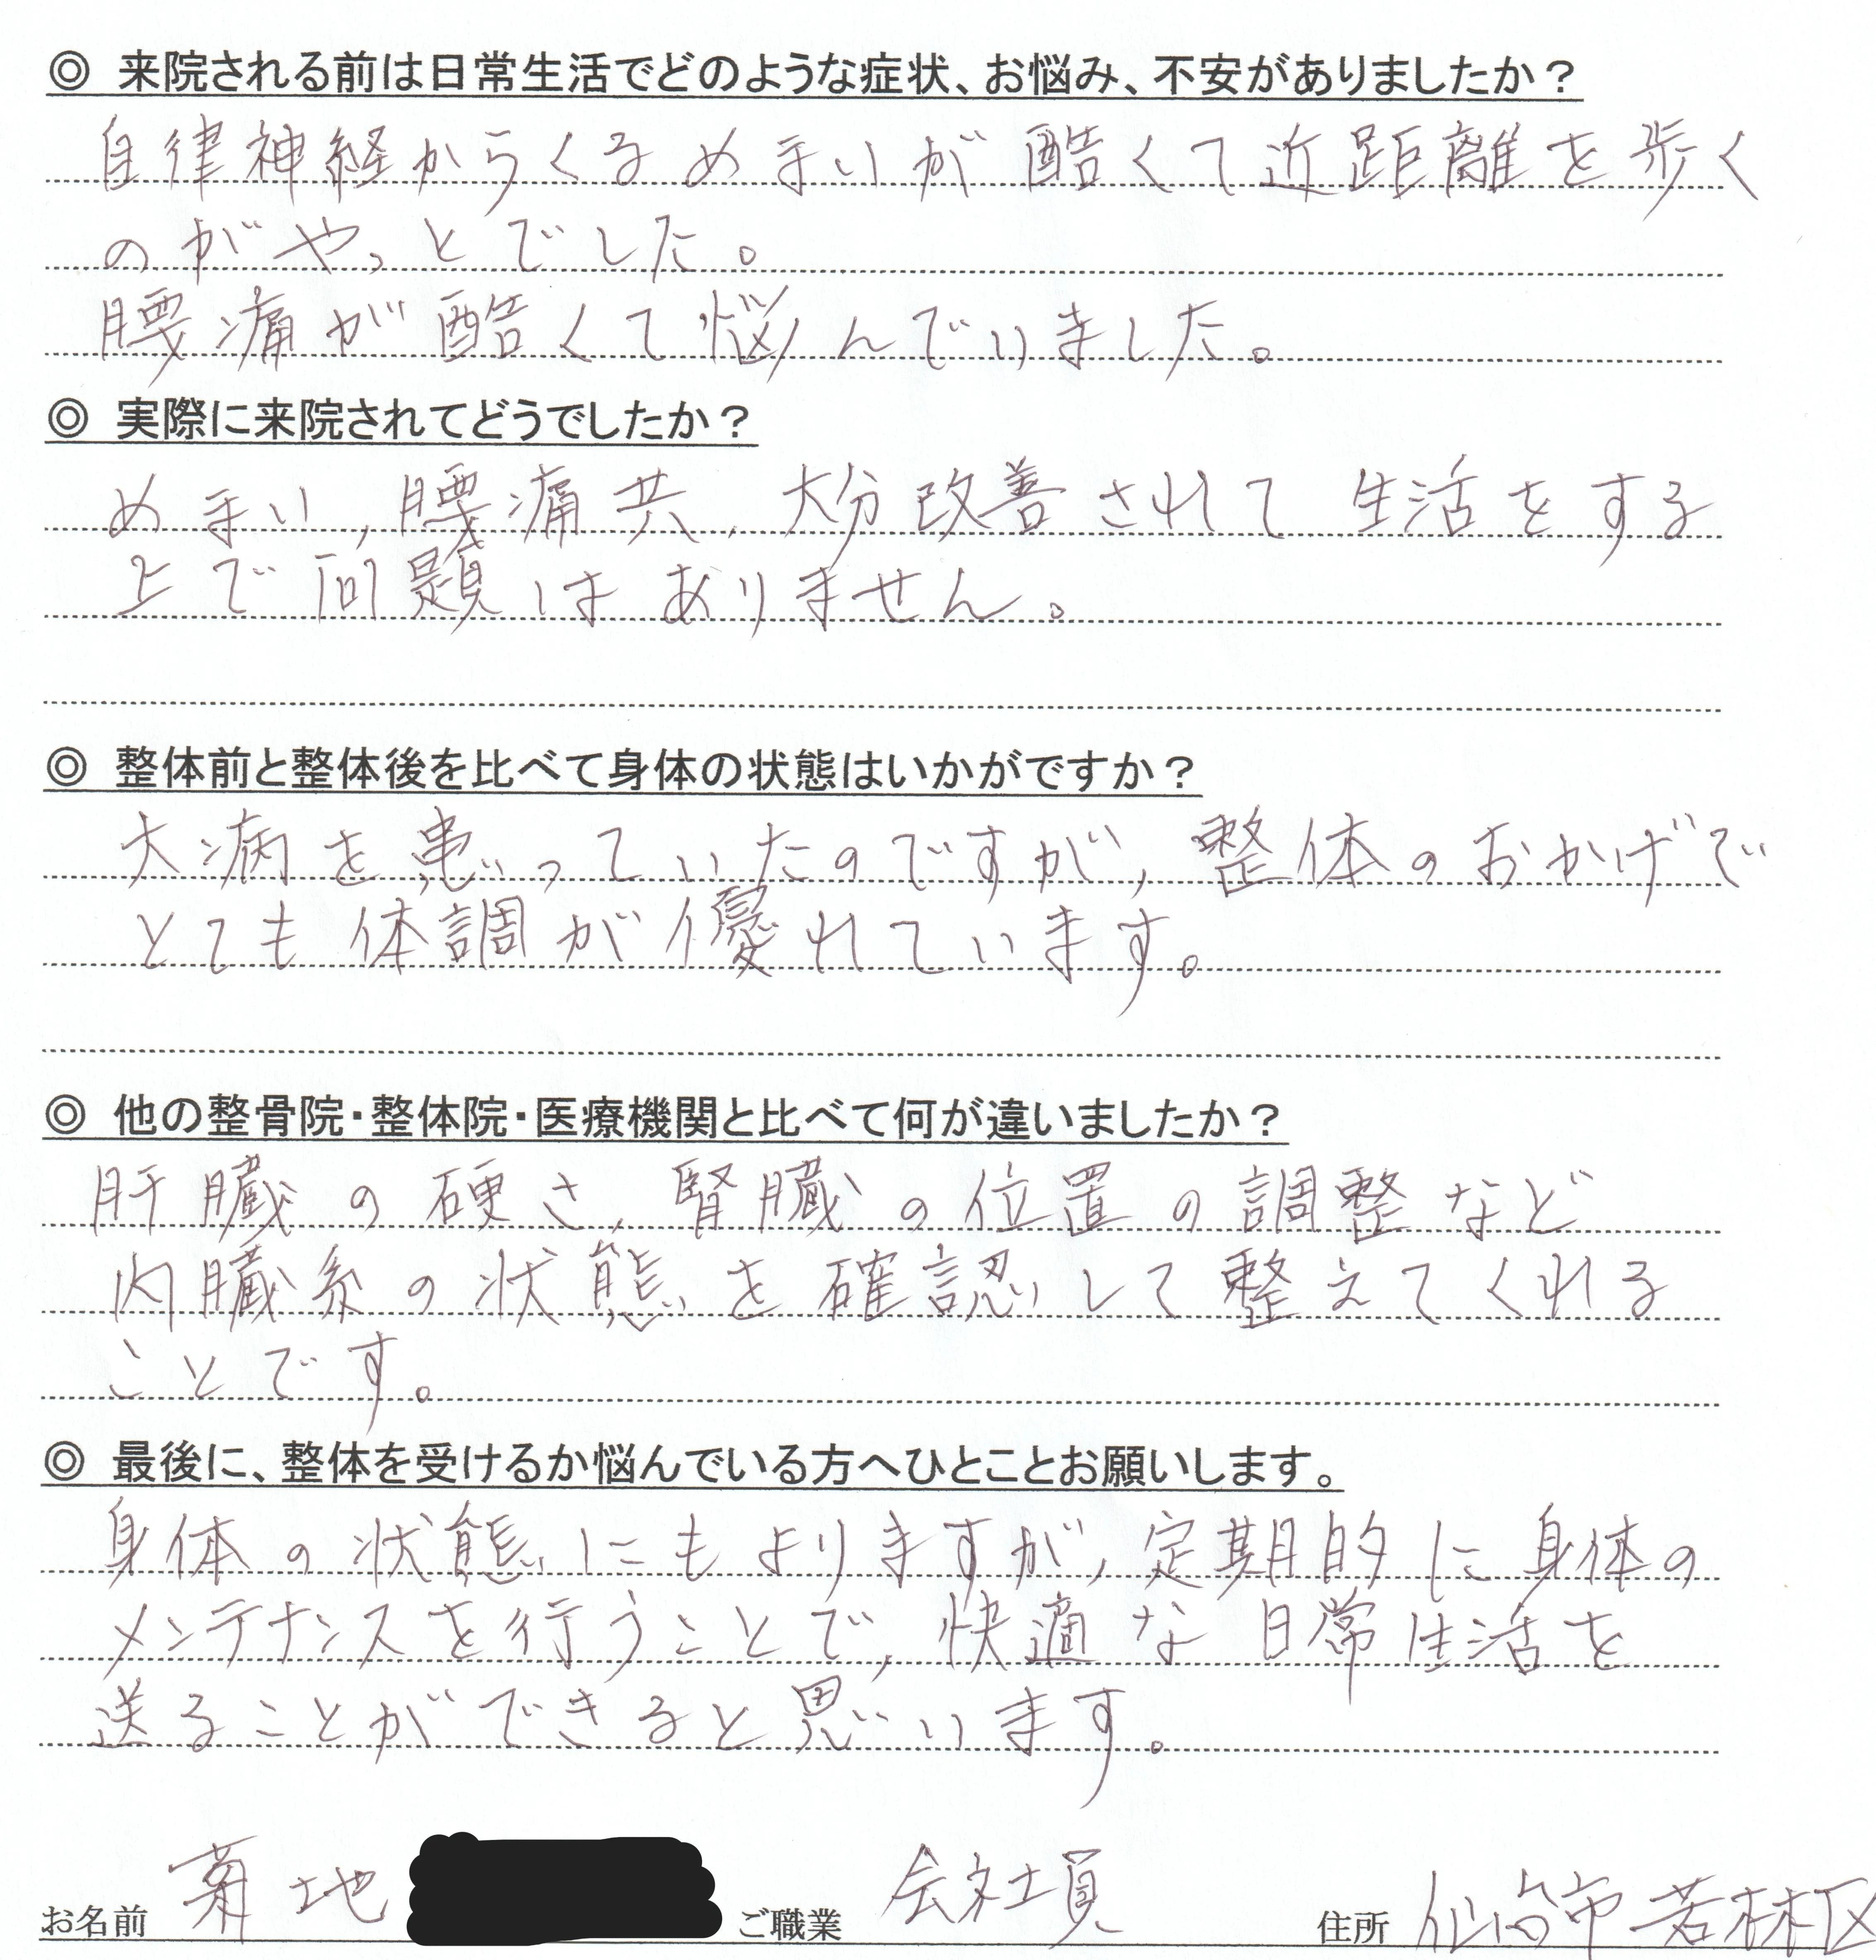 ◎ 来院される前は日常生活でどのような症状、お悩み、不安がありましたか？
自律神経からくるめまいが酷くて近距離を歩く
のがやっとでした。
腰痛が酷くて悩んでいました。
◎ 実際に来院されてどうでしたか？
めまい，腰痛共，大分改善されて生活をする
上で問題はありません。
◎ 整体前と整体後を比べて身体の状態はいかがですか？
大病を患っていたのですが，整体のおかげで
とても体調が優れています。
◎ 他の整骨院・整体院・医療機関と比べて何が違いましたか？
肝臓の硬さ，腎臓の位置の調整など
内臓系の状態を確認して整えてくれる
ことです。
◎ 最後に、整体を受けるか悩んでいる方へひとことお願いします。
身体の状態にもよりますが，定期的に身体の
メンテナンスを行うことで，快適な日常生活を
送ることができると思います。
お名前 菊地 ご職業 会社員 住所 仙台市若林区